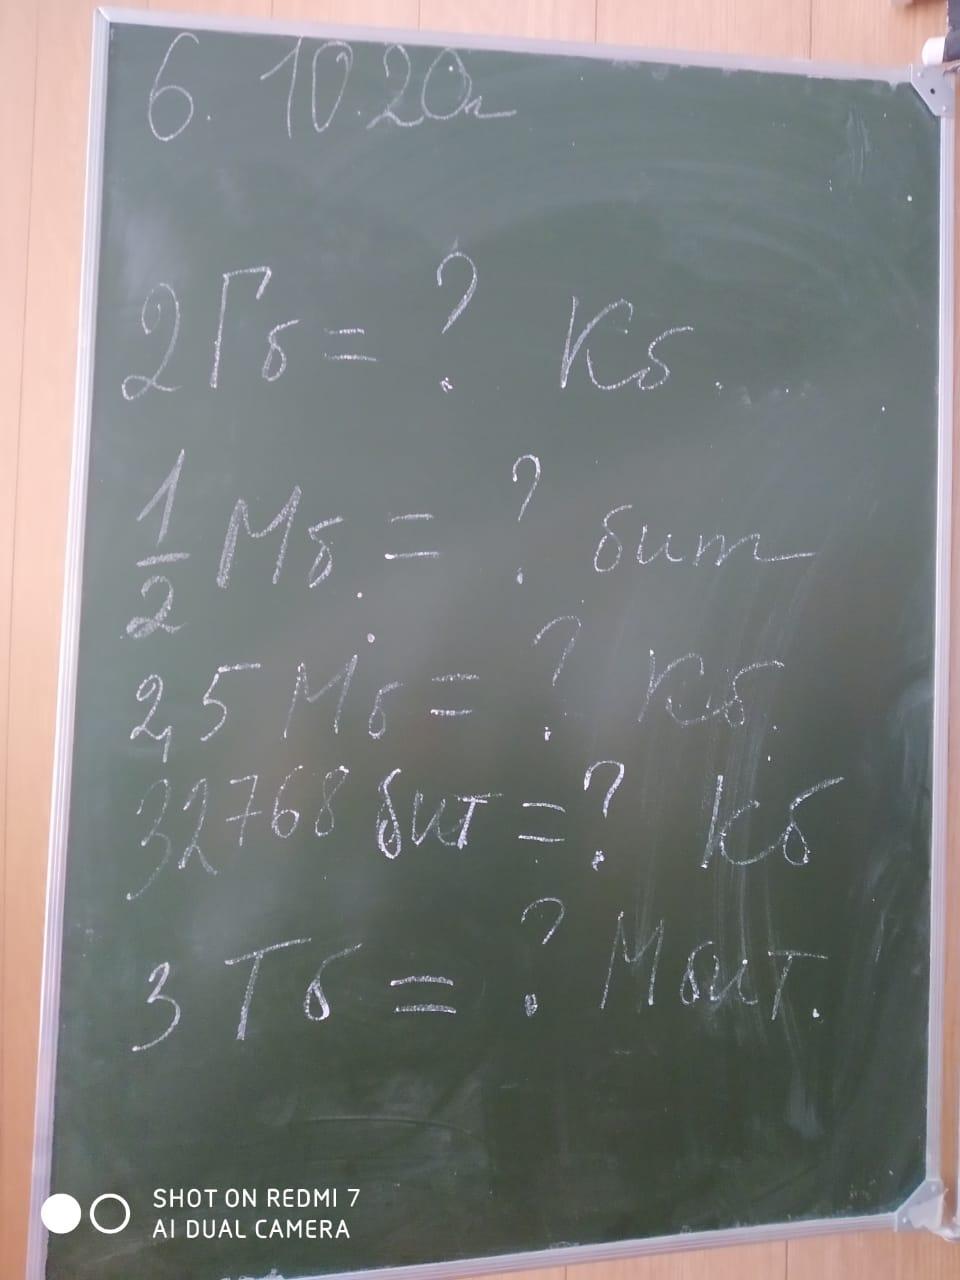 6. 10.20г
2 Гб = ? Кб.
1/2 Мб = ? бит
2,5 Мб = ? Кб.
32768 бит = ? Кб
3 Тб = ? Мбит.
SHOT ON REDMI 7
AI DUAL CAMERA